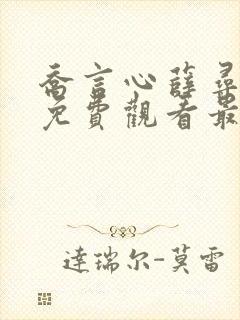 喬言心薛尋
免費觀看最
達瑞尔-莫雷